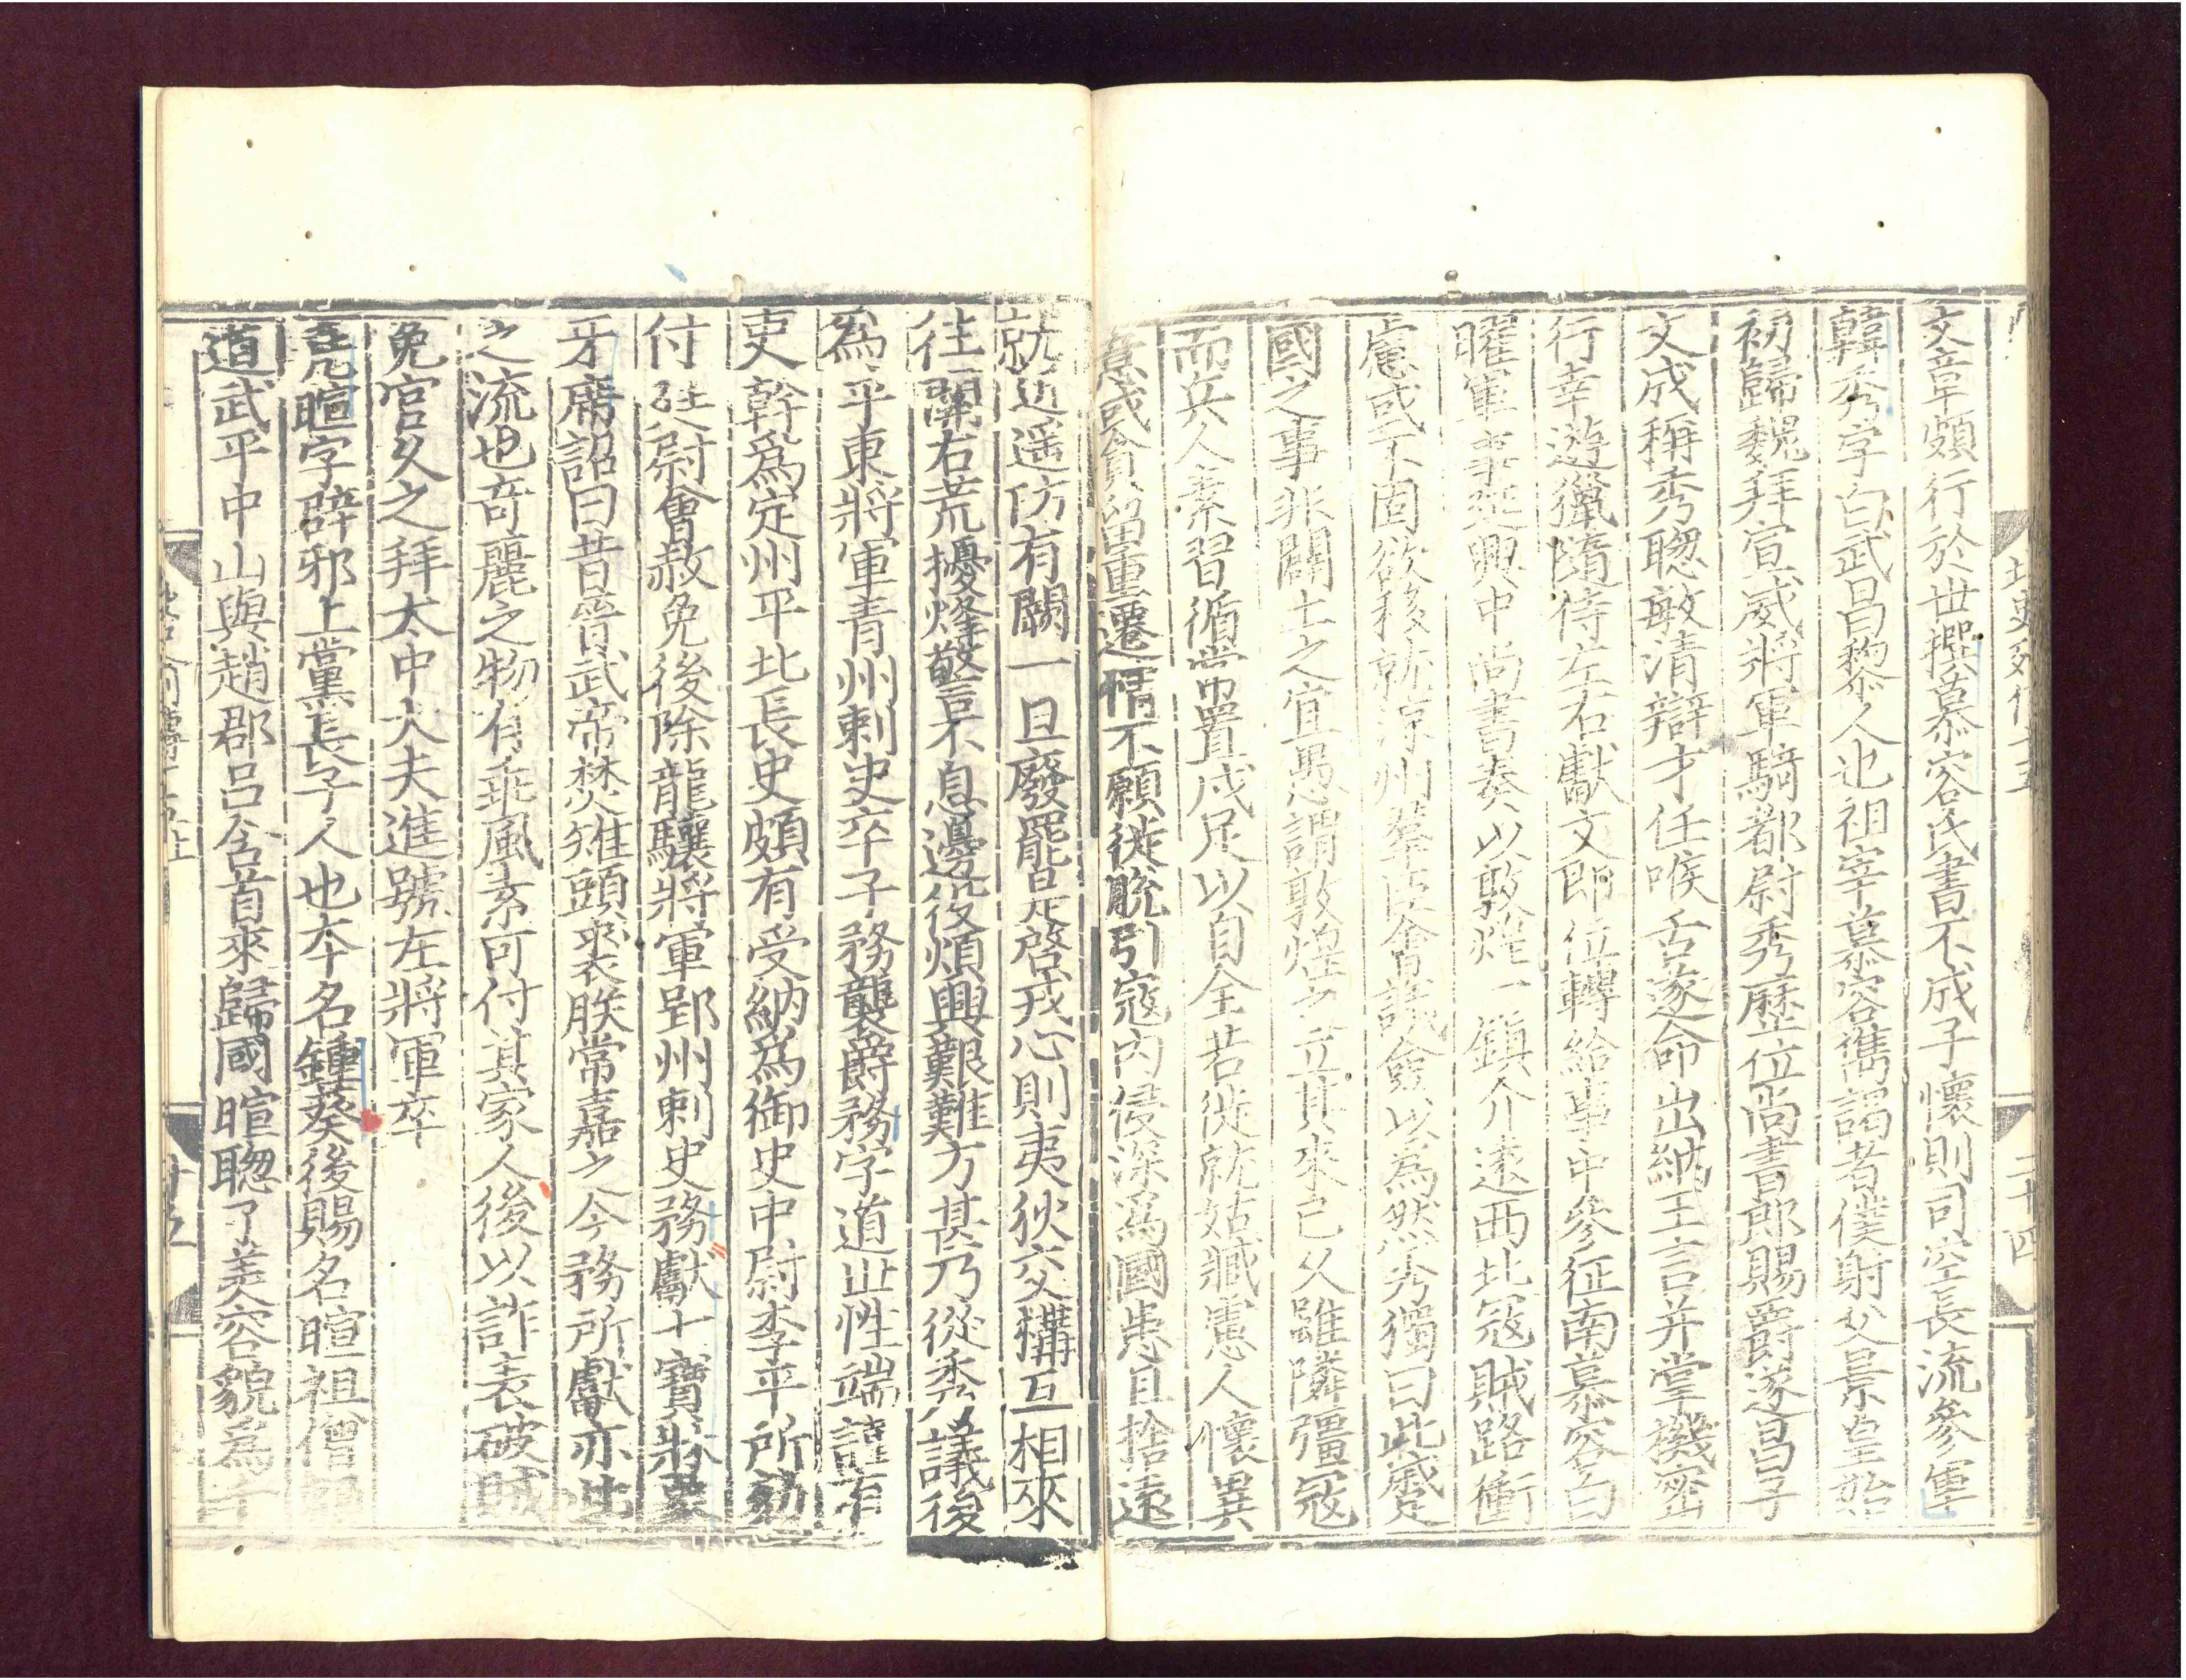 北史列傳十五
二十四
文章頗行於世撰慕容氏書不成子懷則司空長流參軍
韓秀字白武昌黎人也祖宰慕容儁謁者僕射父景皇始
初歸魏拜宣威將軍騎都尉秀歷位尚書郎賜爵遂昌子
文成稱秀聰敏清辯才任喉舌遂命出納王言并掌機密
行幸遊獵隨侍左右獻文即位轉給事中參征南慕容白
曜軍事延興中尚書奏以敦煌一鎮介遠西北寇賊路衝
慮或不固欲移就涼州羣臣會議僉以為然秀獨曰此蹙
國之事非闢土之宜愚謂敦煌之立其來已久雖隣彊寇
而兵人素習循常置戍足以自全若徙就姑臧慮人懷異
意或貪留重遷情不願徙脫引寇內侵深為國患且捨遠
就近遥防有闕一旦廢罷是啓戎心則夷狄交構互相來
往關右荒擾烽警不息邊役煩興艱難方甚乃從秀議後
為平東將軍青州刺史卒子務襲爵務字道世性端謹有
吏幹爲定州平北長史頗有受納為御史中尉李平所劾
付廷尉會赦免後除龍驤將軍郢州刺史務獻七寶牀象
牙席詔曰昔晉武帝焚雉頭裘朕常嘉之今務所獻亦此
之流也奇麗之物有乖風素可付其家人後以詐表破賊
免官久之拜太中大夫進號左將軍卒
堯暄字辟邪上黨長子人也本名鍾葵後賜名暄祖僧賴
道武平中山與趙郡呂含首來歸國暄聰了美容貌爲千